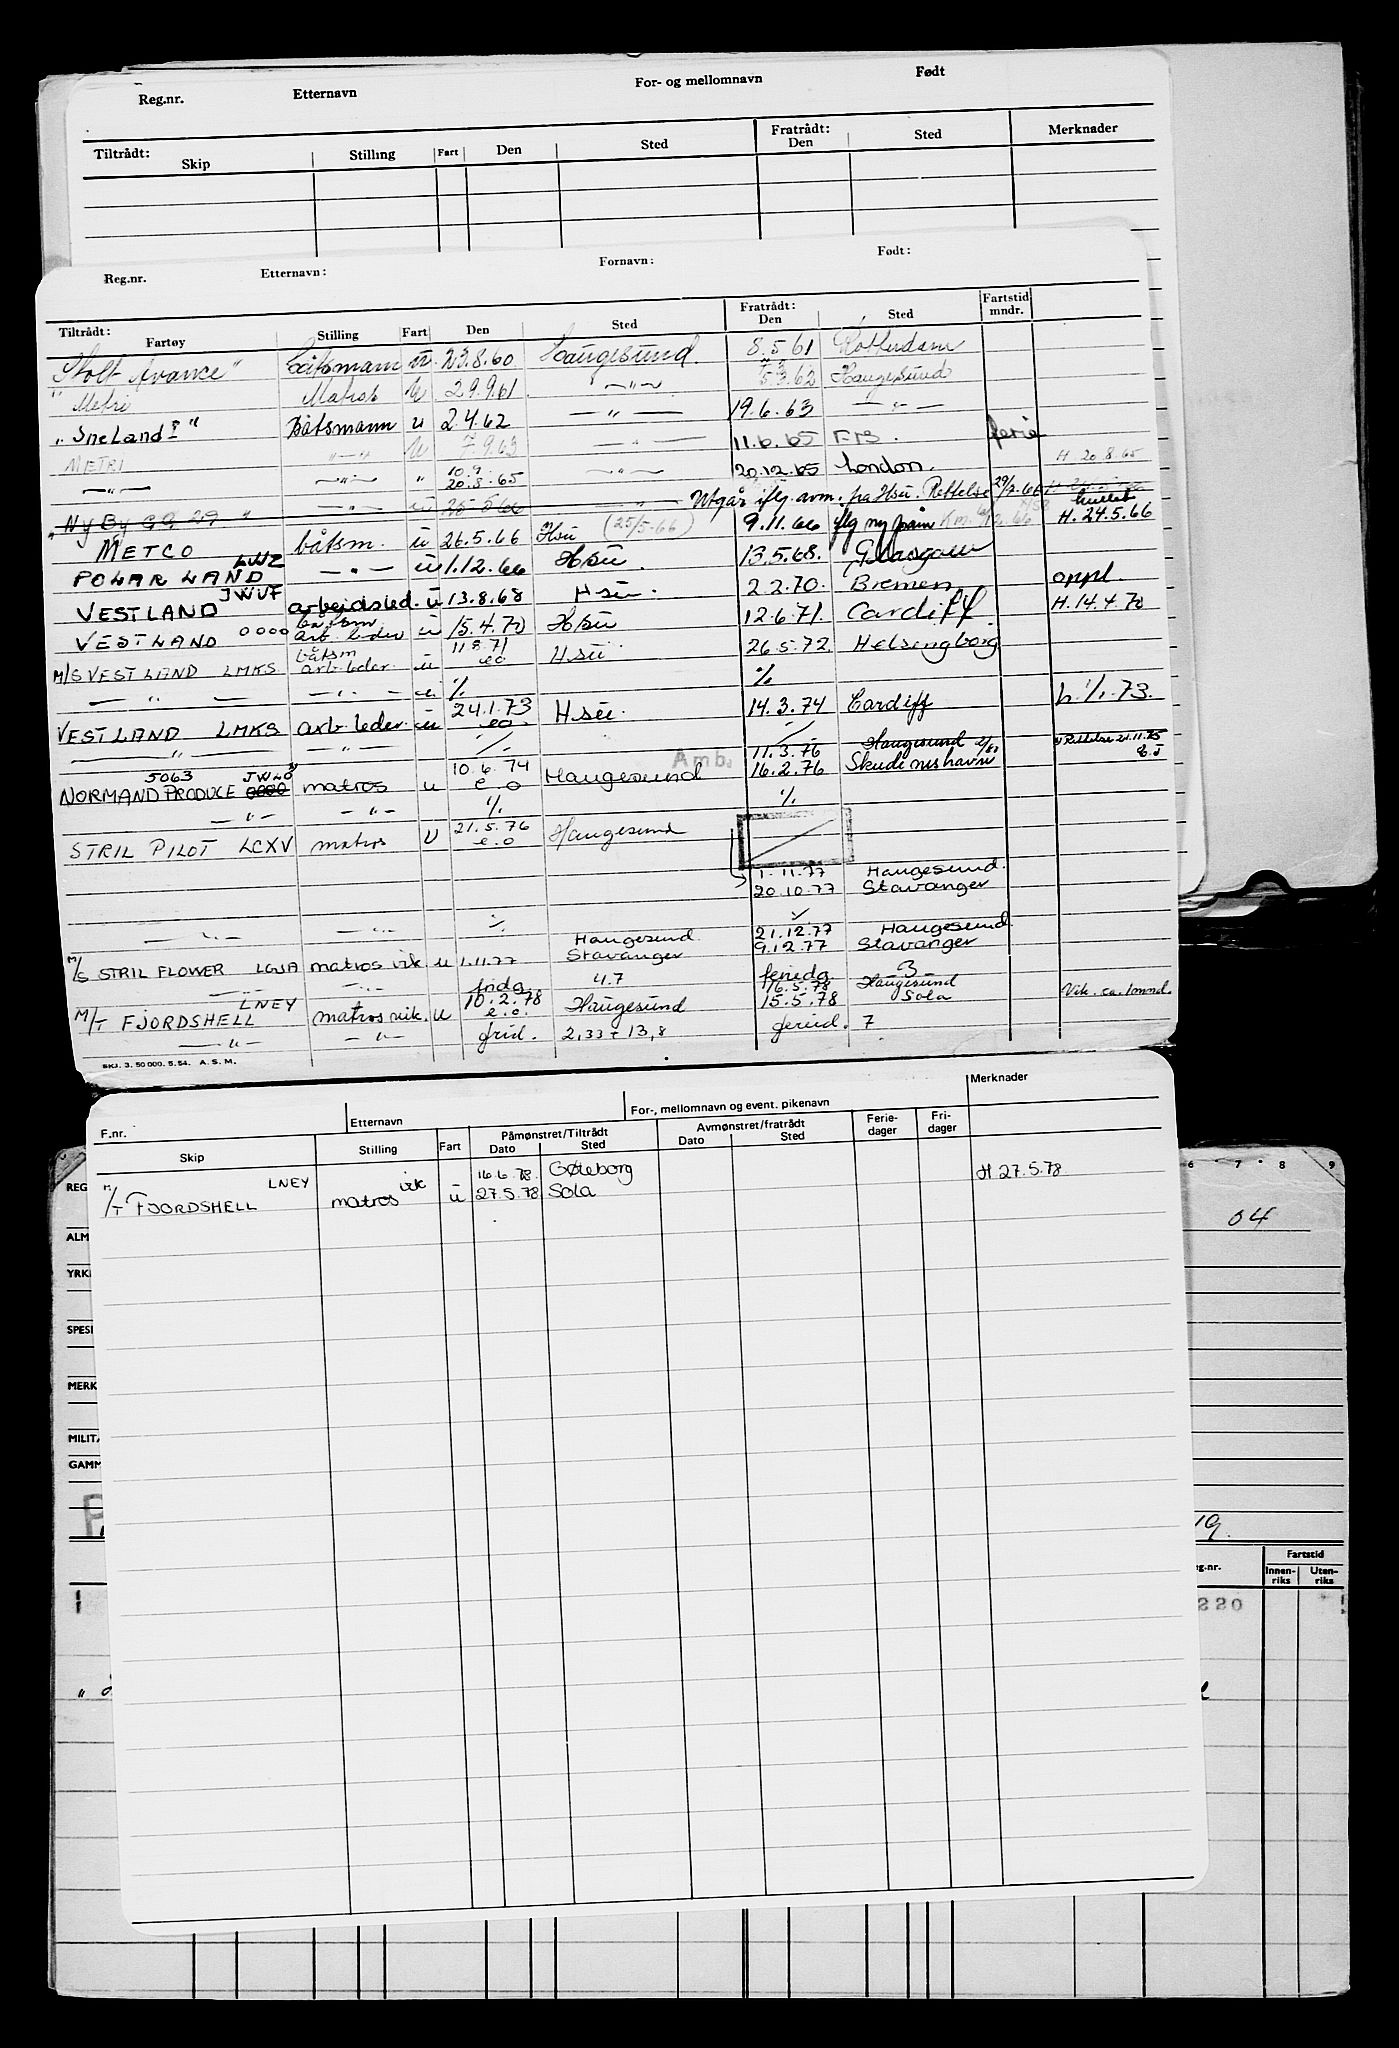 Reg.nr. Etternavn For- og mellomnavn Født
Tiltrådt: Skip Stilling Fart Den Sted Fratrådt: Den Sted Merknader
Reg.nr. Etternavn: Fornavn: Født:
Tiltrådt: Fartøy Stilling Fart Den Sted Fratrådt: Den Sted Fartstid mndr.
"Stolt Avance" båtsmann u. 23.8.60 Haugesund 8.5.61 Rotterdam
"Metri Matros u 29.9.61 —"— 5.3.62 Haugesund
"Sneland I" Båtsmann u 2.4.62 —"— 19.6.63 —"—
METRI —"— u 7.9.63 —"— 11.6.65 ferie
—"— —"— " 20.8.65 —"— 20.12.65 London. H. 20.8.65
"Ny Byg 29" —"— u 25 5 66 —"— Utgår iflg. avm. fra Hsu. Rettelse 29/7.66
METCO båtsm. u 26.5.66 Hsu (25/5-66) 9.11.66 flg ny H. 24.5.66
POLAR LAND LWZ —"— u 1.12.66 Hsu. 13.5.68. Glasgow
VESTLAND JWVF arbejdsled. u 13.8.68 Hsu. 2.2.70. Bremen oppl.
VESTLAND 0000 arb. leder u 15.4.70 Hsu 12.6.71. Cardiff H. 14.4.70
M/S VESTLAND LMKS båtsm arb.leder. u 11.8.71 eo Hsu 26.5.72 Helsingborg
—"— —"— u % %
VESTLAND LMKS arb leder. u 24.1.73 eo Hsu. 14.3.74 Cardiff h. 1/1.73.
—"— —"— % %
11.3.76 Haugesund Rettelse 21.11.75
5063 JWLO
NORMAND PRODUCE 0000 matros u 10.6.74 e o Haugesund Amb. 16.2.76 Skudeneshavn
—"— —"— % %
STRIL PILOT LCXV matros U 21.5.76 e.o Haugesund
1.11.77 Haugesund.
20.10.77 Stavanger
—"— —"— % %
Haugesund 21.12.77 Haugesund
M/S STRIL FLOWER LGJA matros vik u 1.11.77 Stavanger 9.12.77 Stavanger
—"— —"— fridg 4.7 feriedg. 3
16.5.78 Haugesund
M/T FJORDSHELL LNEY matros vik. u 10.2.78 e.o. Haugesund 15.5.78 Sola Vik. ca. 1 mnd.
—"— —"— frid. 2,33 + 13,8 feried. 7
SKJ. 3. 50 000. 5. 54. A. S. M.
F.nr. Etternavn For-, mellomnavn og event. pikenavn Merknader
Skip Stilling Fart Påmønstret/Tiltrådt Dato Sted Avmønstret/fratrådt Dato Sted Ferie- dager Fri- dager
16.6.78. Gøteborg
M/T FJORDSHELL LNEY matros vik u 27.5.78 Sola H 27.5.78
6 7 8 9
REG
ALM
04
YRK
SPESI
MERK
MILITÆ
GAMM
19.
Fartstid
g.nr. Innen- riks Uten- riks
220